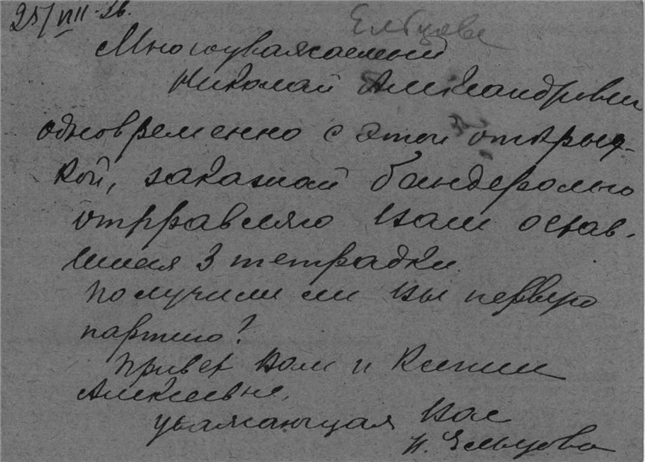 25/VIII-26.
Ельцова
Многоуважаемый
Николай Александрович
одновременно с этой открыт-
кой, заказной бандеролью
отправляю Вам остав-
шиеся 3 тетрадки.
Получили ли Вы первую
партию?
Привет Вам и Ксении
Алексеевне.
Уважающая Вас
Н. Ельцова